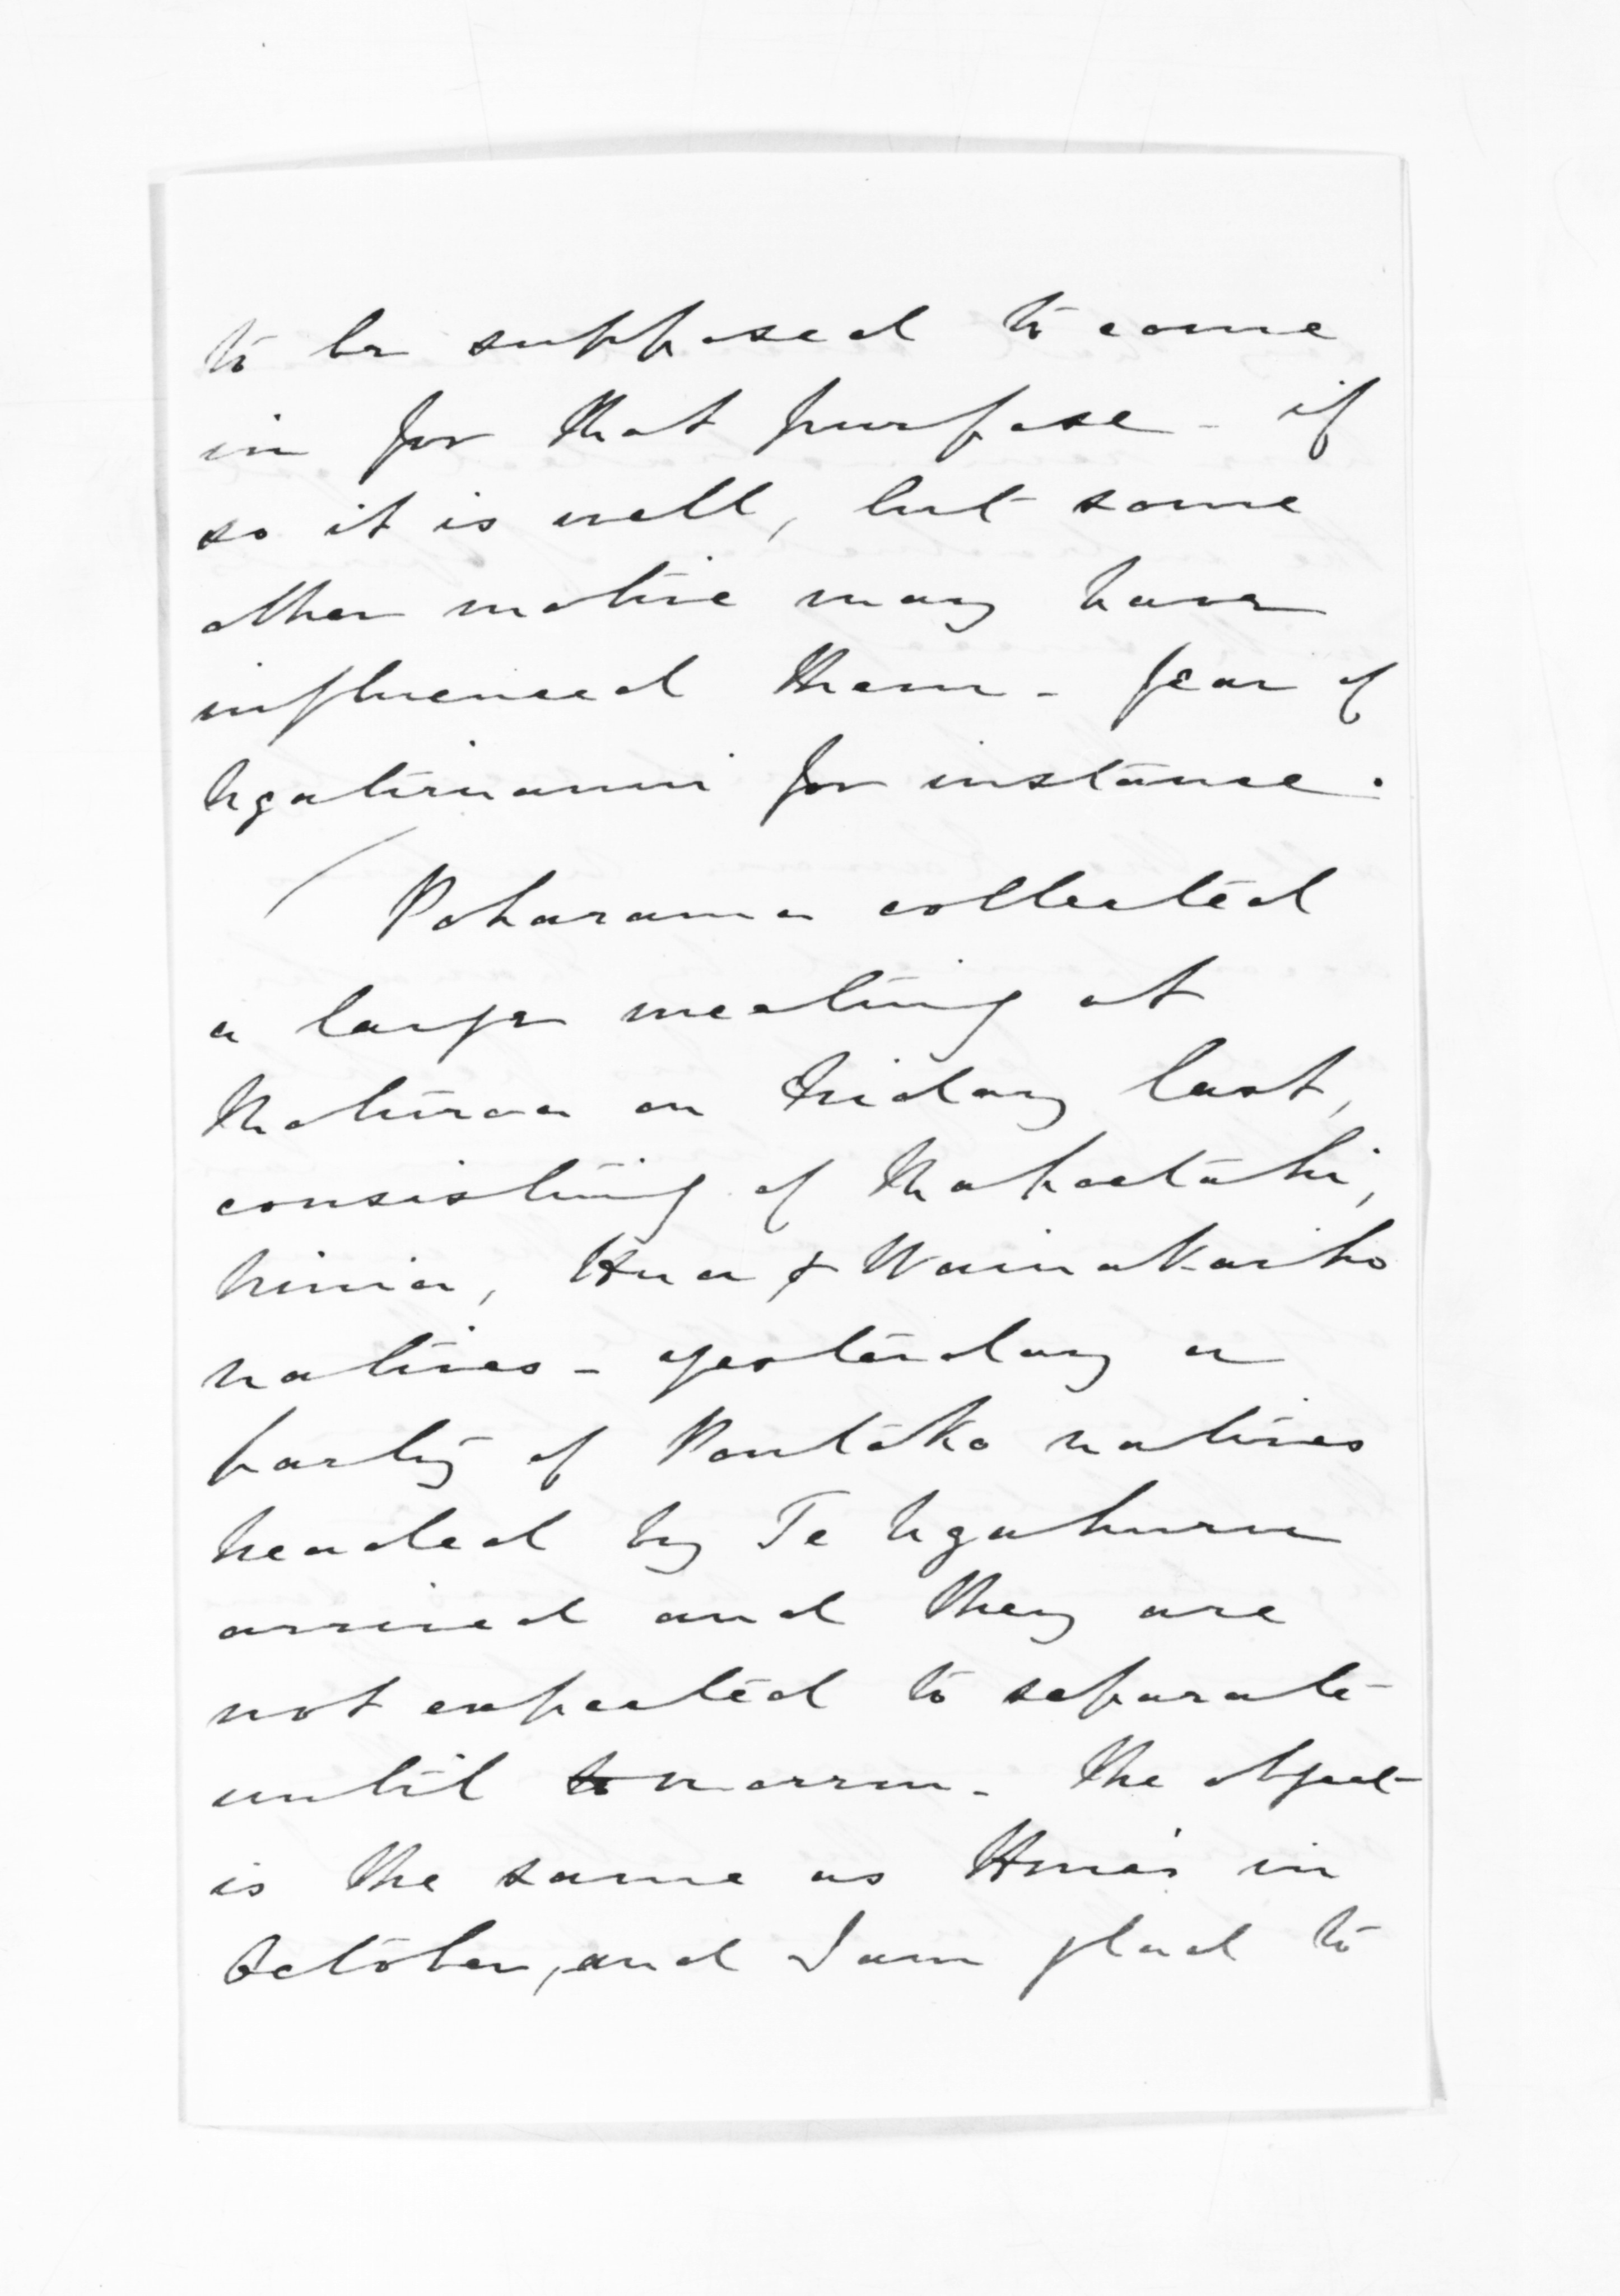 to be supposed to come
in for that purpose - if
so it is well, but some
other motive may have
influenced them - fear of
Ngatiruanui for instance.
Poharama collected
a large meeting at
Moturoa on Friday last,
consisting of Mahoetahi,
Ninia, Hua & Waiwakaiho
natives - yesterday a
party of Poutoko natives
headed by Te Ngahuru
arrived and they are
not expected to separate
until to morrow - The object
is the same as Hua's in
October, and I am glad to